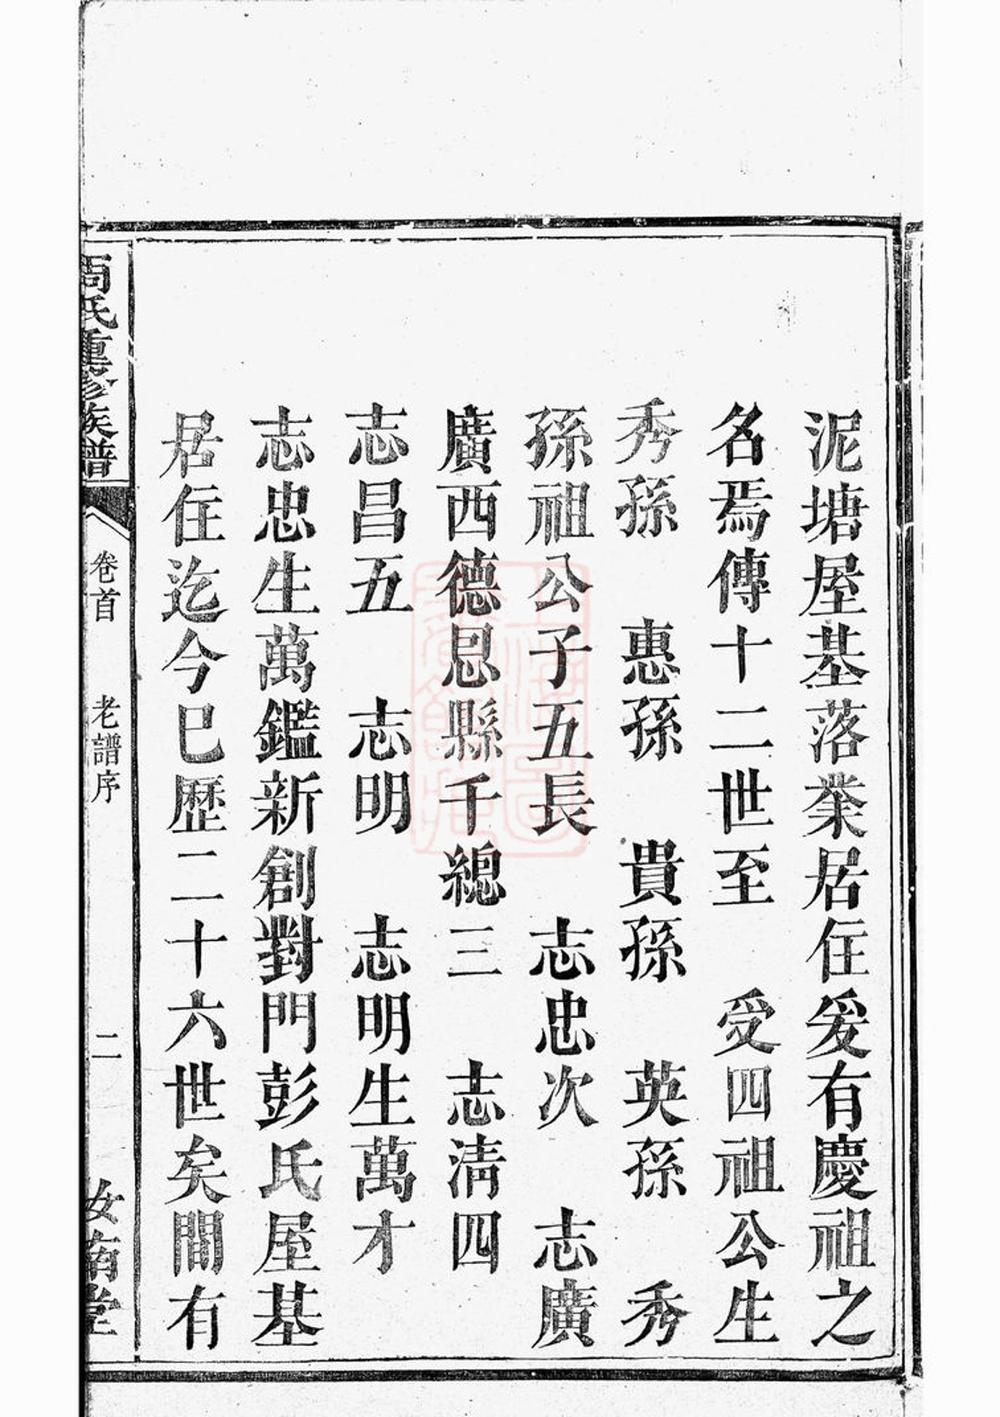 泥塘屋基落業居住爰有慶祖之
名焉傳十二世至　受四祖公生
秀孫　惠孫　貴孫　英孫　秀
孫祖公子五長　志忠次　志廣
廣西德恩縣千總三　志清四
志昌五　志明　志明生萬才
志忠生萬鑑新創對門彭氏屋基
居住迄今巳歷二十六世矣間有
周氏重修族譜
卷首　老譜序
二
汝南堂